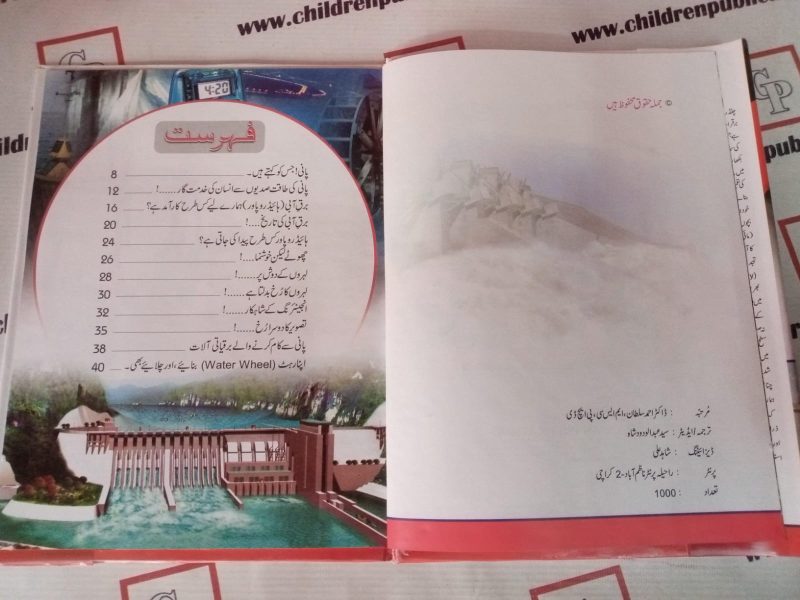 www.childrenpublic
www.child
www.children
4:20
فہرست
پانی! جس کو کہتے ہیں۔ 8
پانی کی طاقت صدیوں سے انسان کی خدمت گار......! 12
برق آبی (ہائیڈرو پاور) ہمارے لیے کس طرح کارآمد ہے؟ 16
برق آبی کی تاریخ....! 20
ہائیڈرو پاور کس طرح پیدا کی جاتی ہے؟ 24
چھوٹے لیکن خوشنما....! 26
لہروں کے دوش پر......! 28
لہروں کا رُخ بدلتا ہے......! 30
انجینئرنگ کے شاہکار......! 32
تصویر کا دوسرا رُخ......! 35
پانی سے کام کرنے والے برقیاتی آلات 38
اپنا رہٹ (Water Wheel) بنائیے، اور چلائیے بھی۔ 40
© جملہ حقوق محفوظ ہیں
مُرتبہ : ڈاکٹر احمد سلطان، ایم ایس سی، پی ایچ ڈی
ترجمہ / ایڈیٹر : سید عبدالودود شاہ
ڈیزائننگ : شاہد علی
پرنٹر : راحیلہ پرنٹر ناظم آباد-2 کراچی
تعداد : 1000
CP